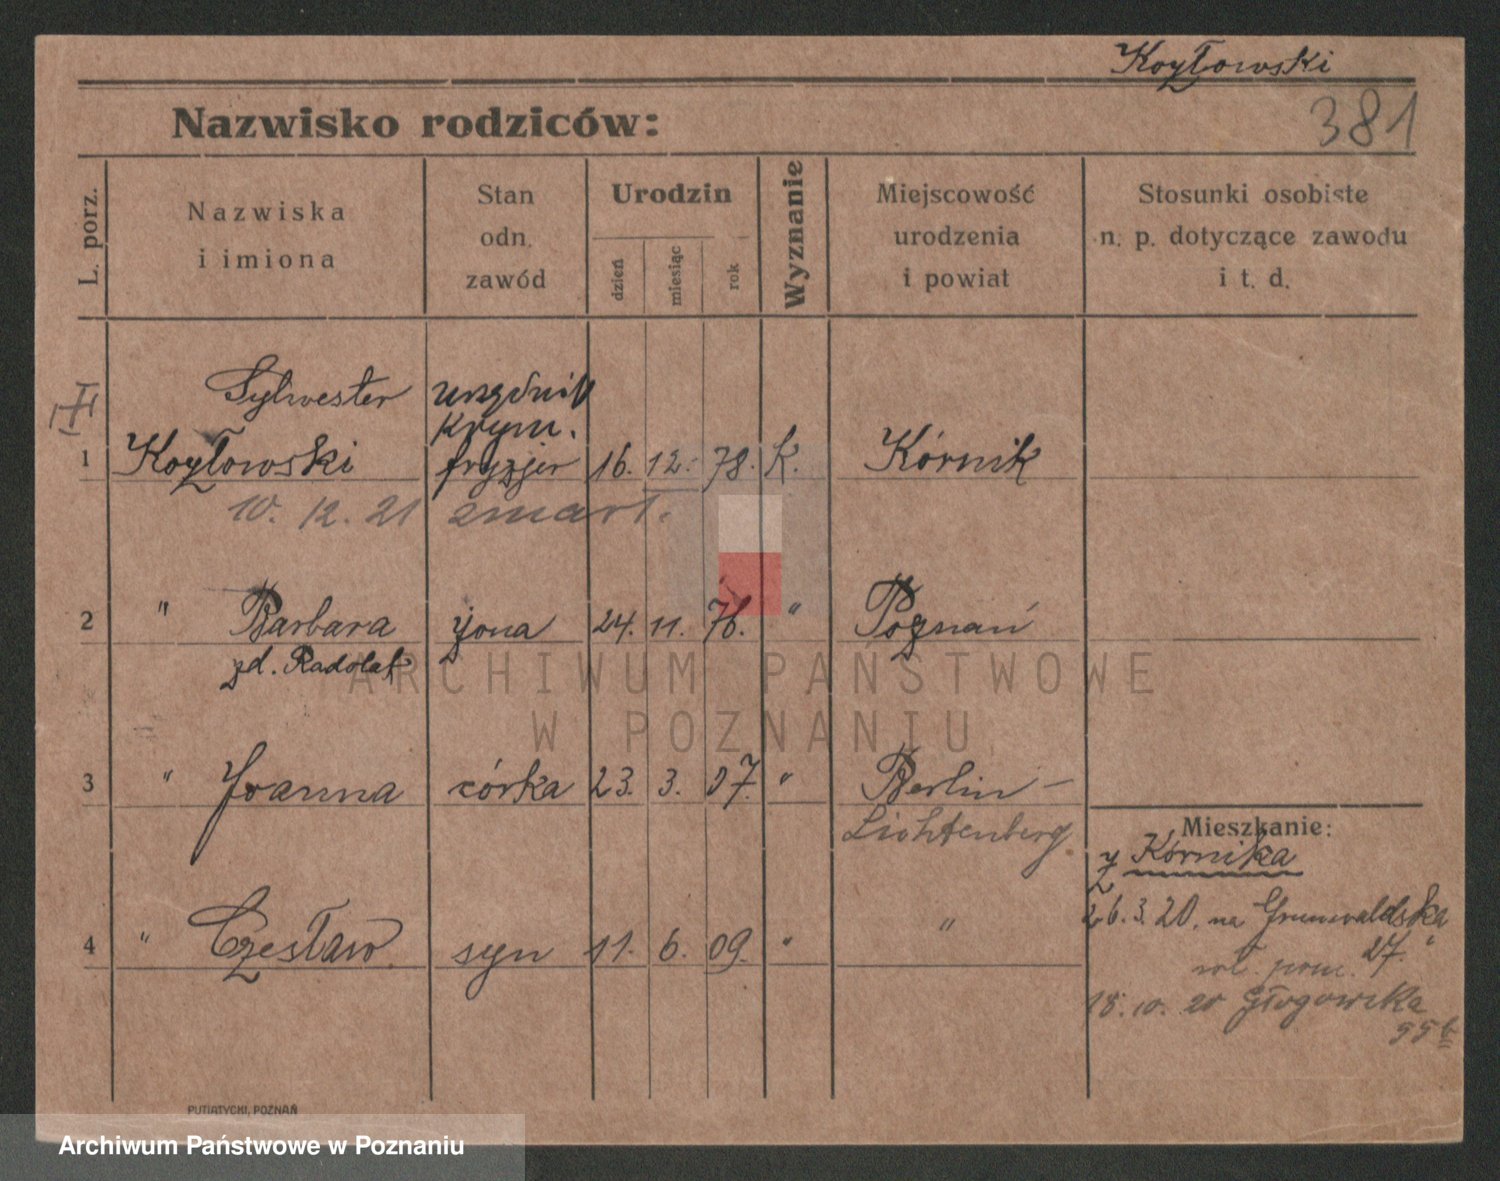 Kozłowski
381
Nazwisko rodziców:
L. porz.
Nazwiska
i imiona
Stan
odn.
zawód
Urodzin
dzień
miesiąc
rok
Wyznanie
Miejscowość
urodzenia
i powiat
Stosunki osobiste
n. p. dotyczące zawodu
i t. d.
Sylwester urzędnik
krym.
1 Kozłowski fryzjer 16. 12. 78. k. Kórnik
10. 12. 21 zmart.
2 " Barbara żona 24. 11. 76. " Poznań
zd. Radolak
ARCHIWUM PAŃSTWOWE
W POZNANIU
3 " Joanna córka 23. 3. 07. " Berlin-
Lichtenberg
Mieszkanie:
z Kórnika
26. 3. 20. na Grunwaldska
27.
4 " Czesław syn 11. 6. 09. " "
18. 10. 20 Głogowska
55b
PUTIATYCKI, POZNAŃ
Archiwum Państwowe w Poznaniu